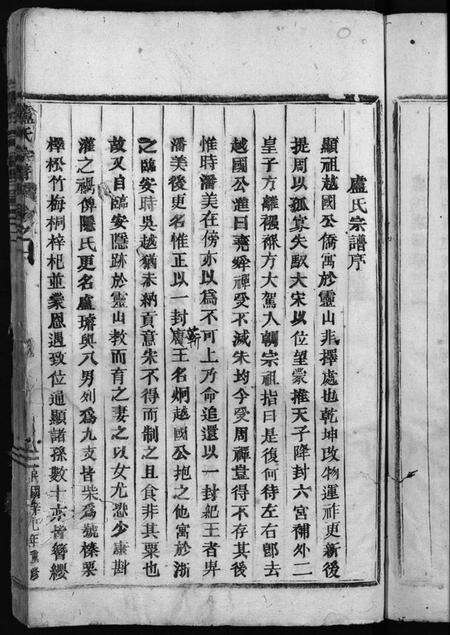 盧氏宗譜序
顯祖越國公僑寓於靈山非擇處也乾坤改物運祚更新後
提周以孤寡失馭大宋以位望蒙推天子降封六宮補外二
皇子方離襁褓方大駕入朝宗祖指曰是復何待左右郎去
越國公進曰堯舜禪受不滅朱均今受周禪豈得不存其後
惟時潘美在傍亦以為不可上乃命追還以一封紀王者卑
潘美後更名惟正以一封蘄王名炯越國公抱之他寓於浙
之臨安時吳越猶未納貢意宋不得而制之且食非其粟也
故又自臨安隱跡於靈山教而育之妻之以女尤恐少康斟
灌之禍俾隱氏更名盧璿與八男列為九支皆柴為號榛栗
樺松竹梅桐梓杞並蒙恩遇致位通顯諸孫數十亦皆簪纓